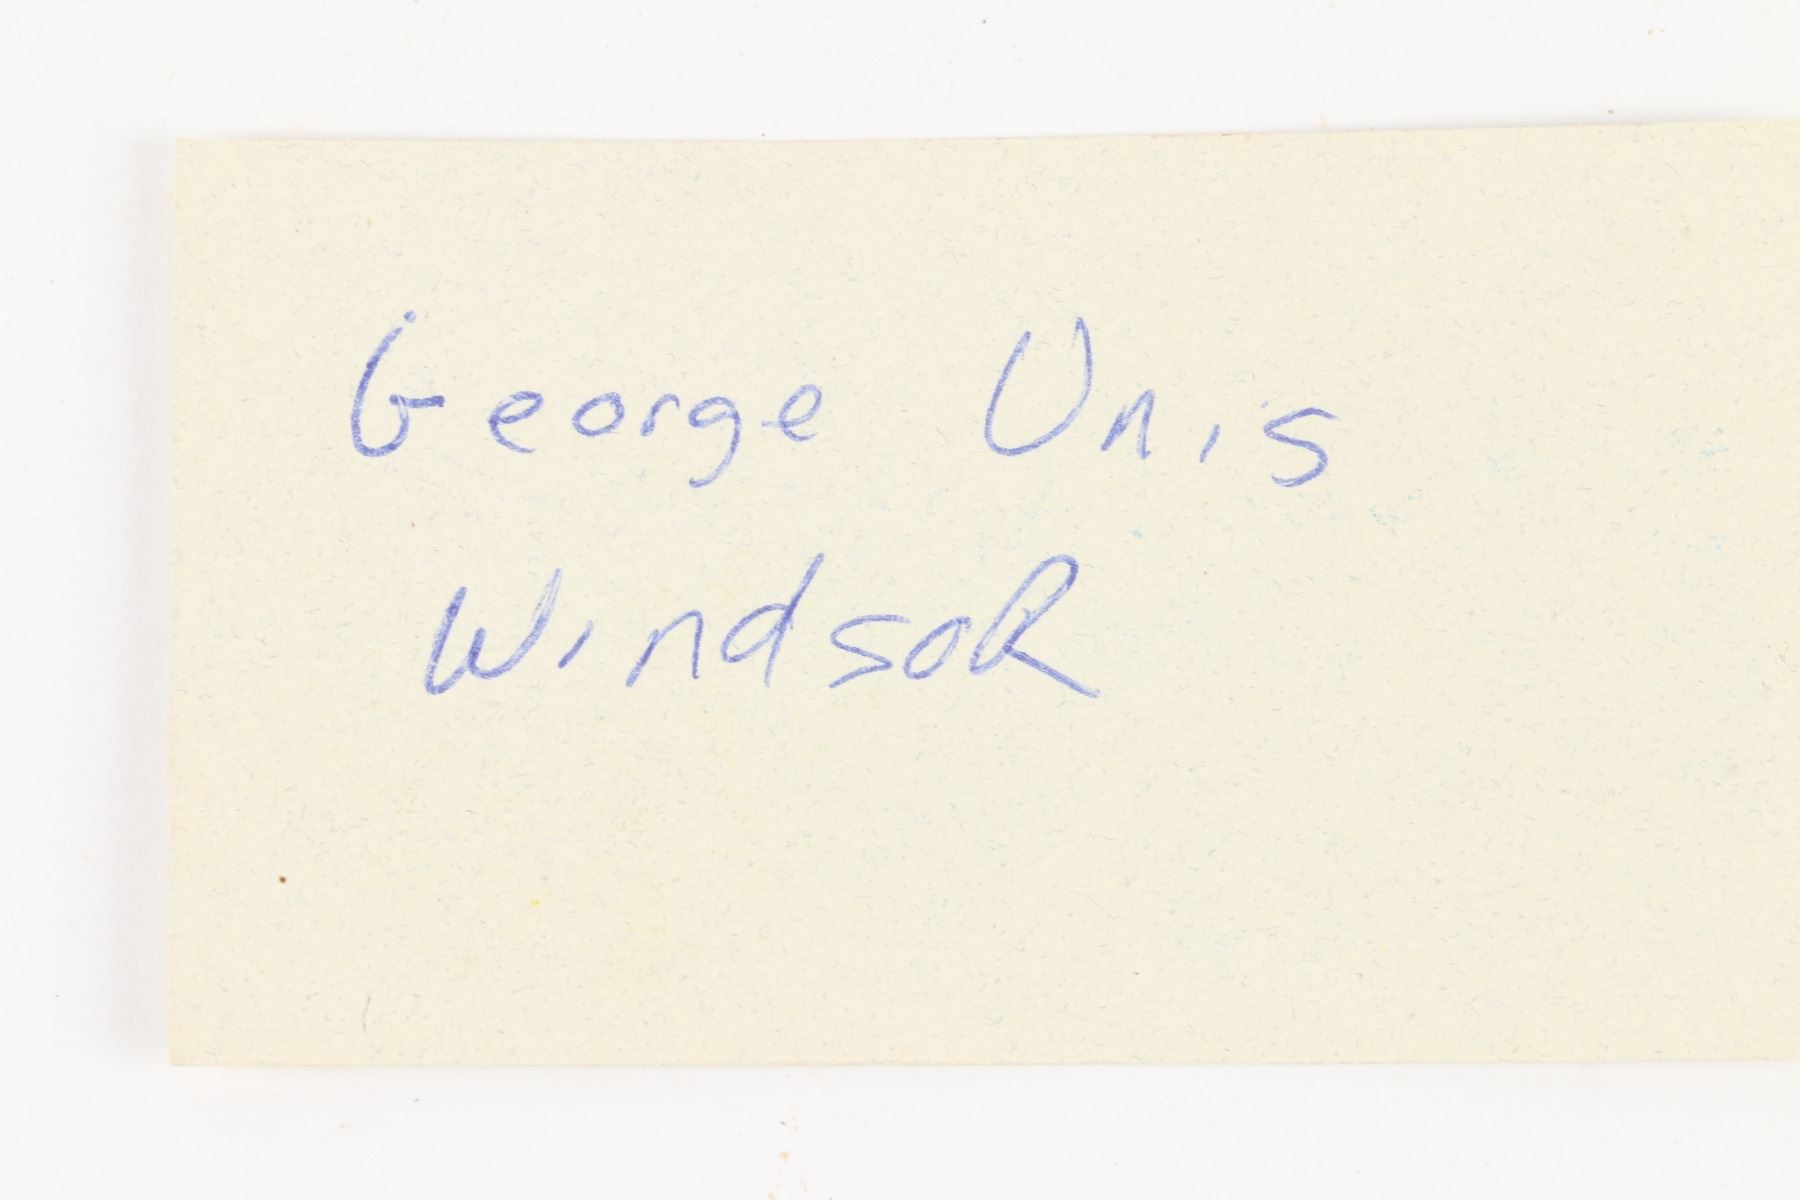 George Unis
WindsoR